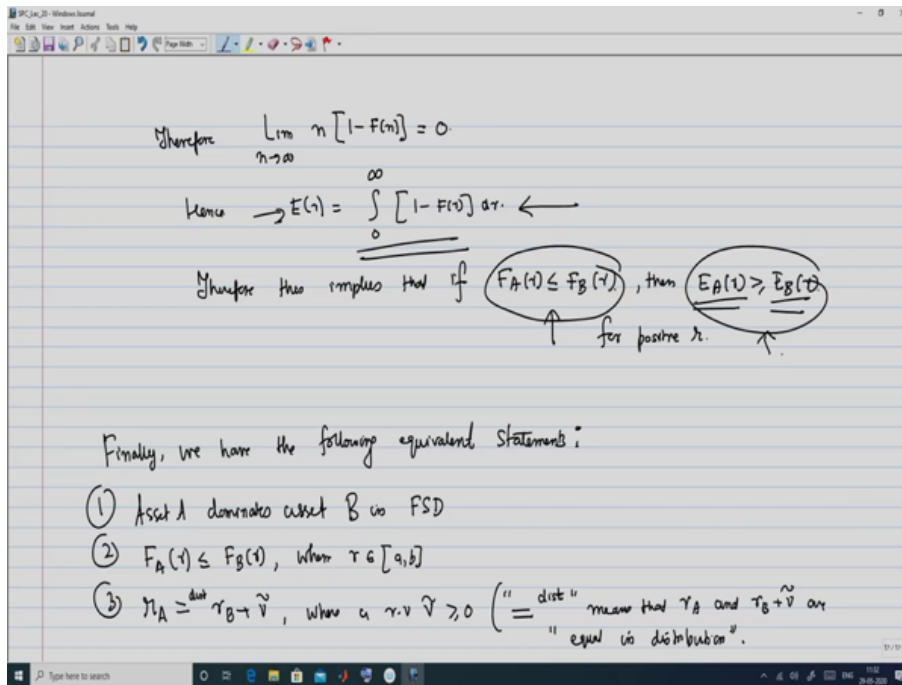 SPC_Lec_20 - Windows Journal
File Edit View Insert Actions Tools Help
Page Width
Therefore Lim n [1 - F(n)] = 0.
n→∞
Hence → E(r) = ∫₀^∞ [1 - F(r)] dr. ←
Therefore this implies that if F_A(r) ≤ F_B(r), then E_A(r) ≥, E_B(r)
for positive r.
Finally, we have the following equivalent statements:
① Asset A dominates asset B in FSD
② F_A(r) ≤ F_B(r), when r ∈ [a,b]
③ r_A =^dist r_B + ṽ, where a r.v ṽ ≥ 0 ("=^dist" means that r_A and r_B + ṽ are
"equal in distribution".
Type here to search
ENG
11:32
29-05-2020